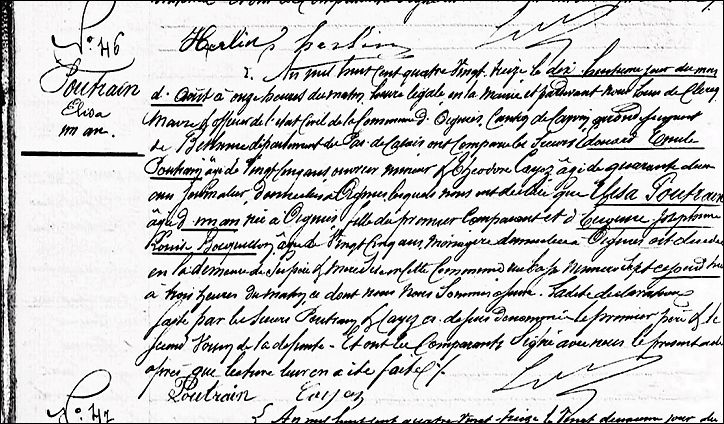 N° 46
Poutrain
Elisa
un an.
Herlin herlin
L'An mil huit cent quatre Vingt treize le dix huitieme jour du mois
d'Août à onze heures du matin, heure légale en la mairie et pardevant nous
Maire & officier de l'état Civil de la Commune d'Oignies, Canton de Carvin arrondissement
de Bethune département du Pas de Calais ont comparu les Sieurs Edouard Emile
Poutrain, âgé de Vingt Cinq ans ouvrier mineur & Théodore âgé de quarante deux
ans Journalier, domiciliés à Oignies, lesquels nous ont déclaré que Elisa Poutrain
âgée d'un an née à Oignies, fille du premier Comparant et d' Josephine
Louise âgée de Vingt Cinq ans Ménagère domiciliée à Oignies est décédée
en la demeure de ses père & mère Sise en cette Commune numéro Sept
à trois heures du matin, ce dont nous nous Sommes assuré. Ladite déclaration
faite par les Sieurs Poutrain & de susdénommé le premier père & le
Second Voisin de la défunte - Et ont les Comparants Signé avec nous le présent acte
après que lecture leur en a été faite.
Poutrain
N° 47
L'An mil huit cent quatre Vingt treize le Vingt deuxieme jour du